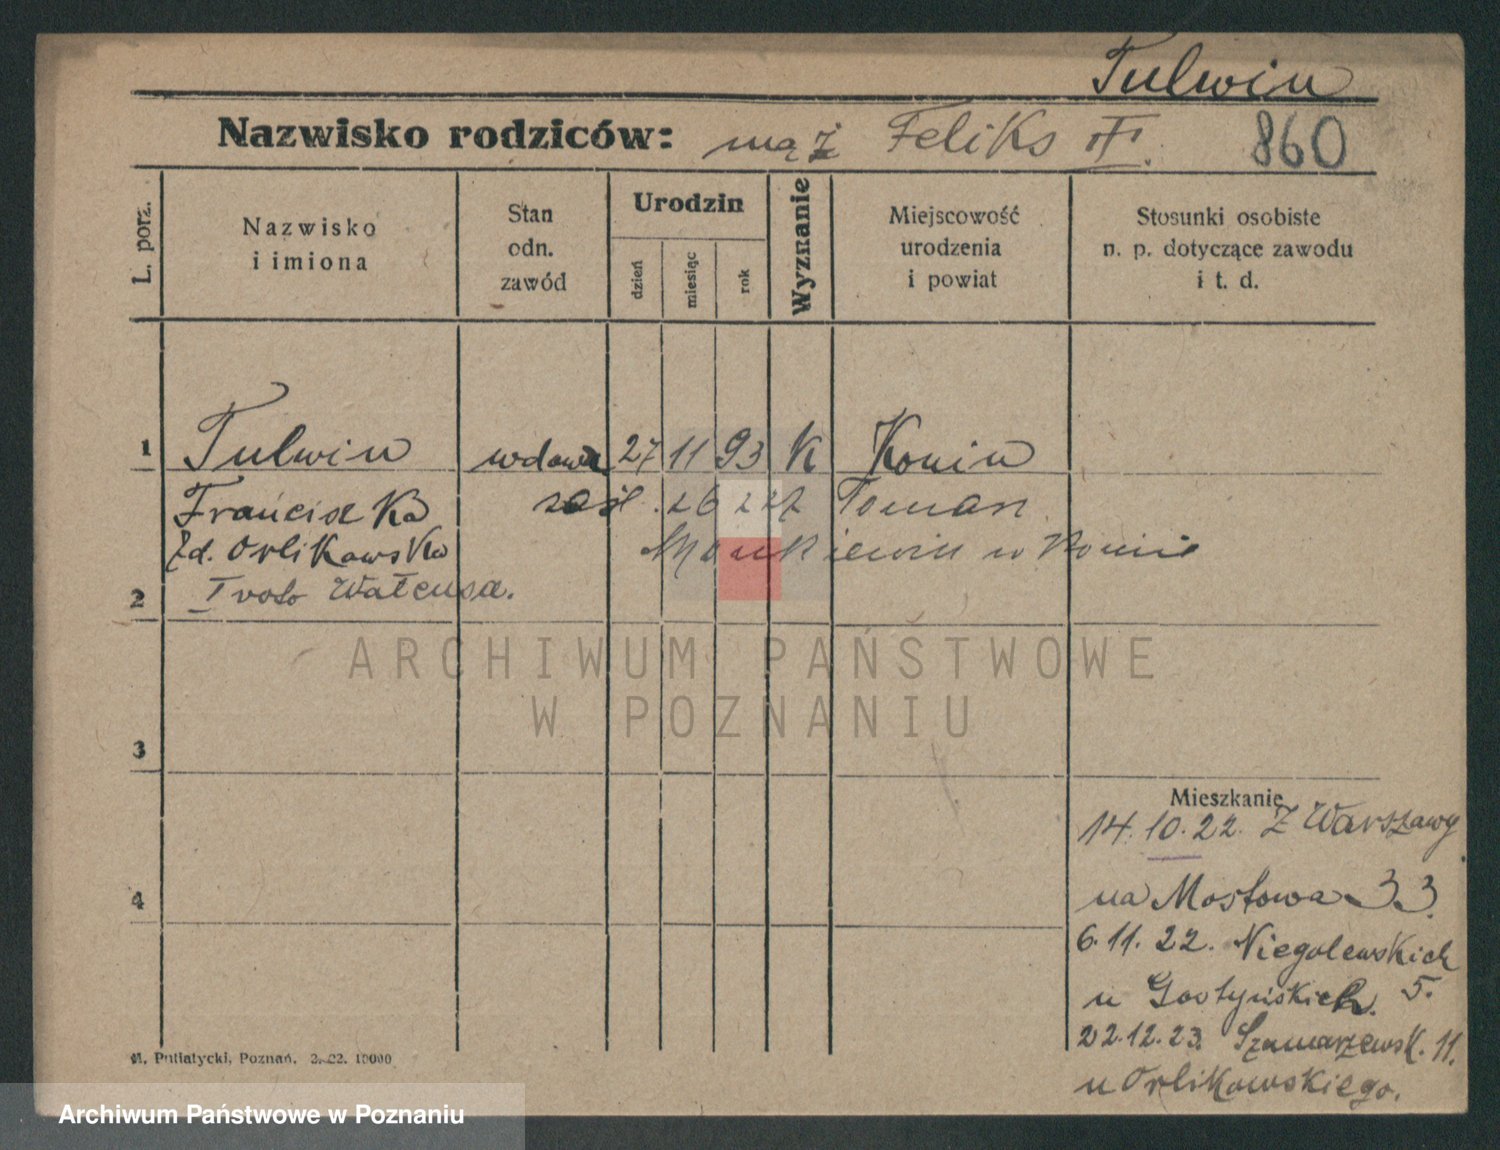 Tulwin
Nazwisko rodziców: mąż Feliks T. 860
L. porz.
Nazwisko
i imiona
Stan
odn.
zawód
Urodzin
dzień
miesiąc
rok
Wyznanie
Miejscowość
urodzenia
i powiat
Stosunki osobiste
n. p. dotyczące zawodu
i t. d.
1 Tulwin wdowa 27 11 93 K Konin
Franciszka zaśl. 26 2 22 Toman
zd. Orlikowska w Koninie
2 I voto Wałensa.
ARCHIWUM PAŃSTWOWE
W POZNANIU
3
Mieszkanie
14.10.22. z Warszawy
4 na Mostowa 33.
6.11.22. Niegolewskich
u Gostyńskich. 5.
22.12.23. Szamarzewsk. 11.
u Orlikowskiego.
M. Putiatycki, Poznań. 2. 22. 10000
Archiwum Państwowe w Poznaniu